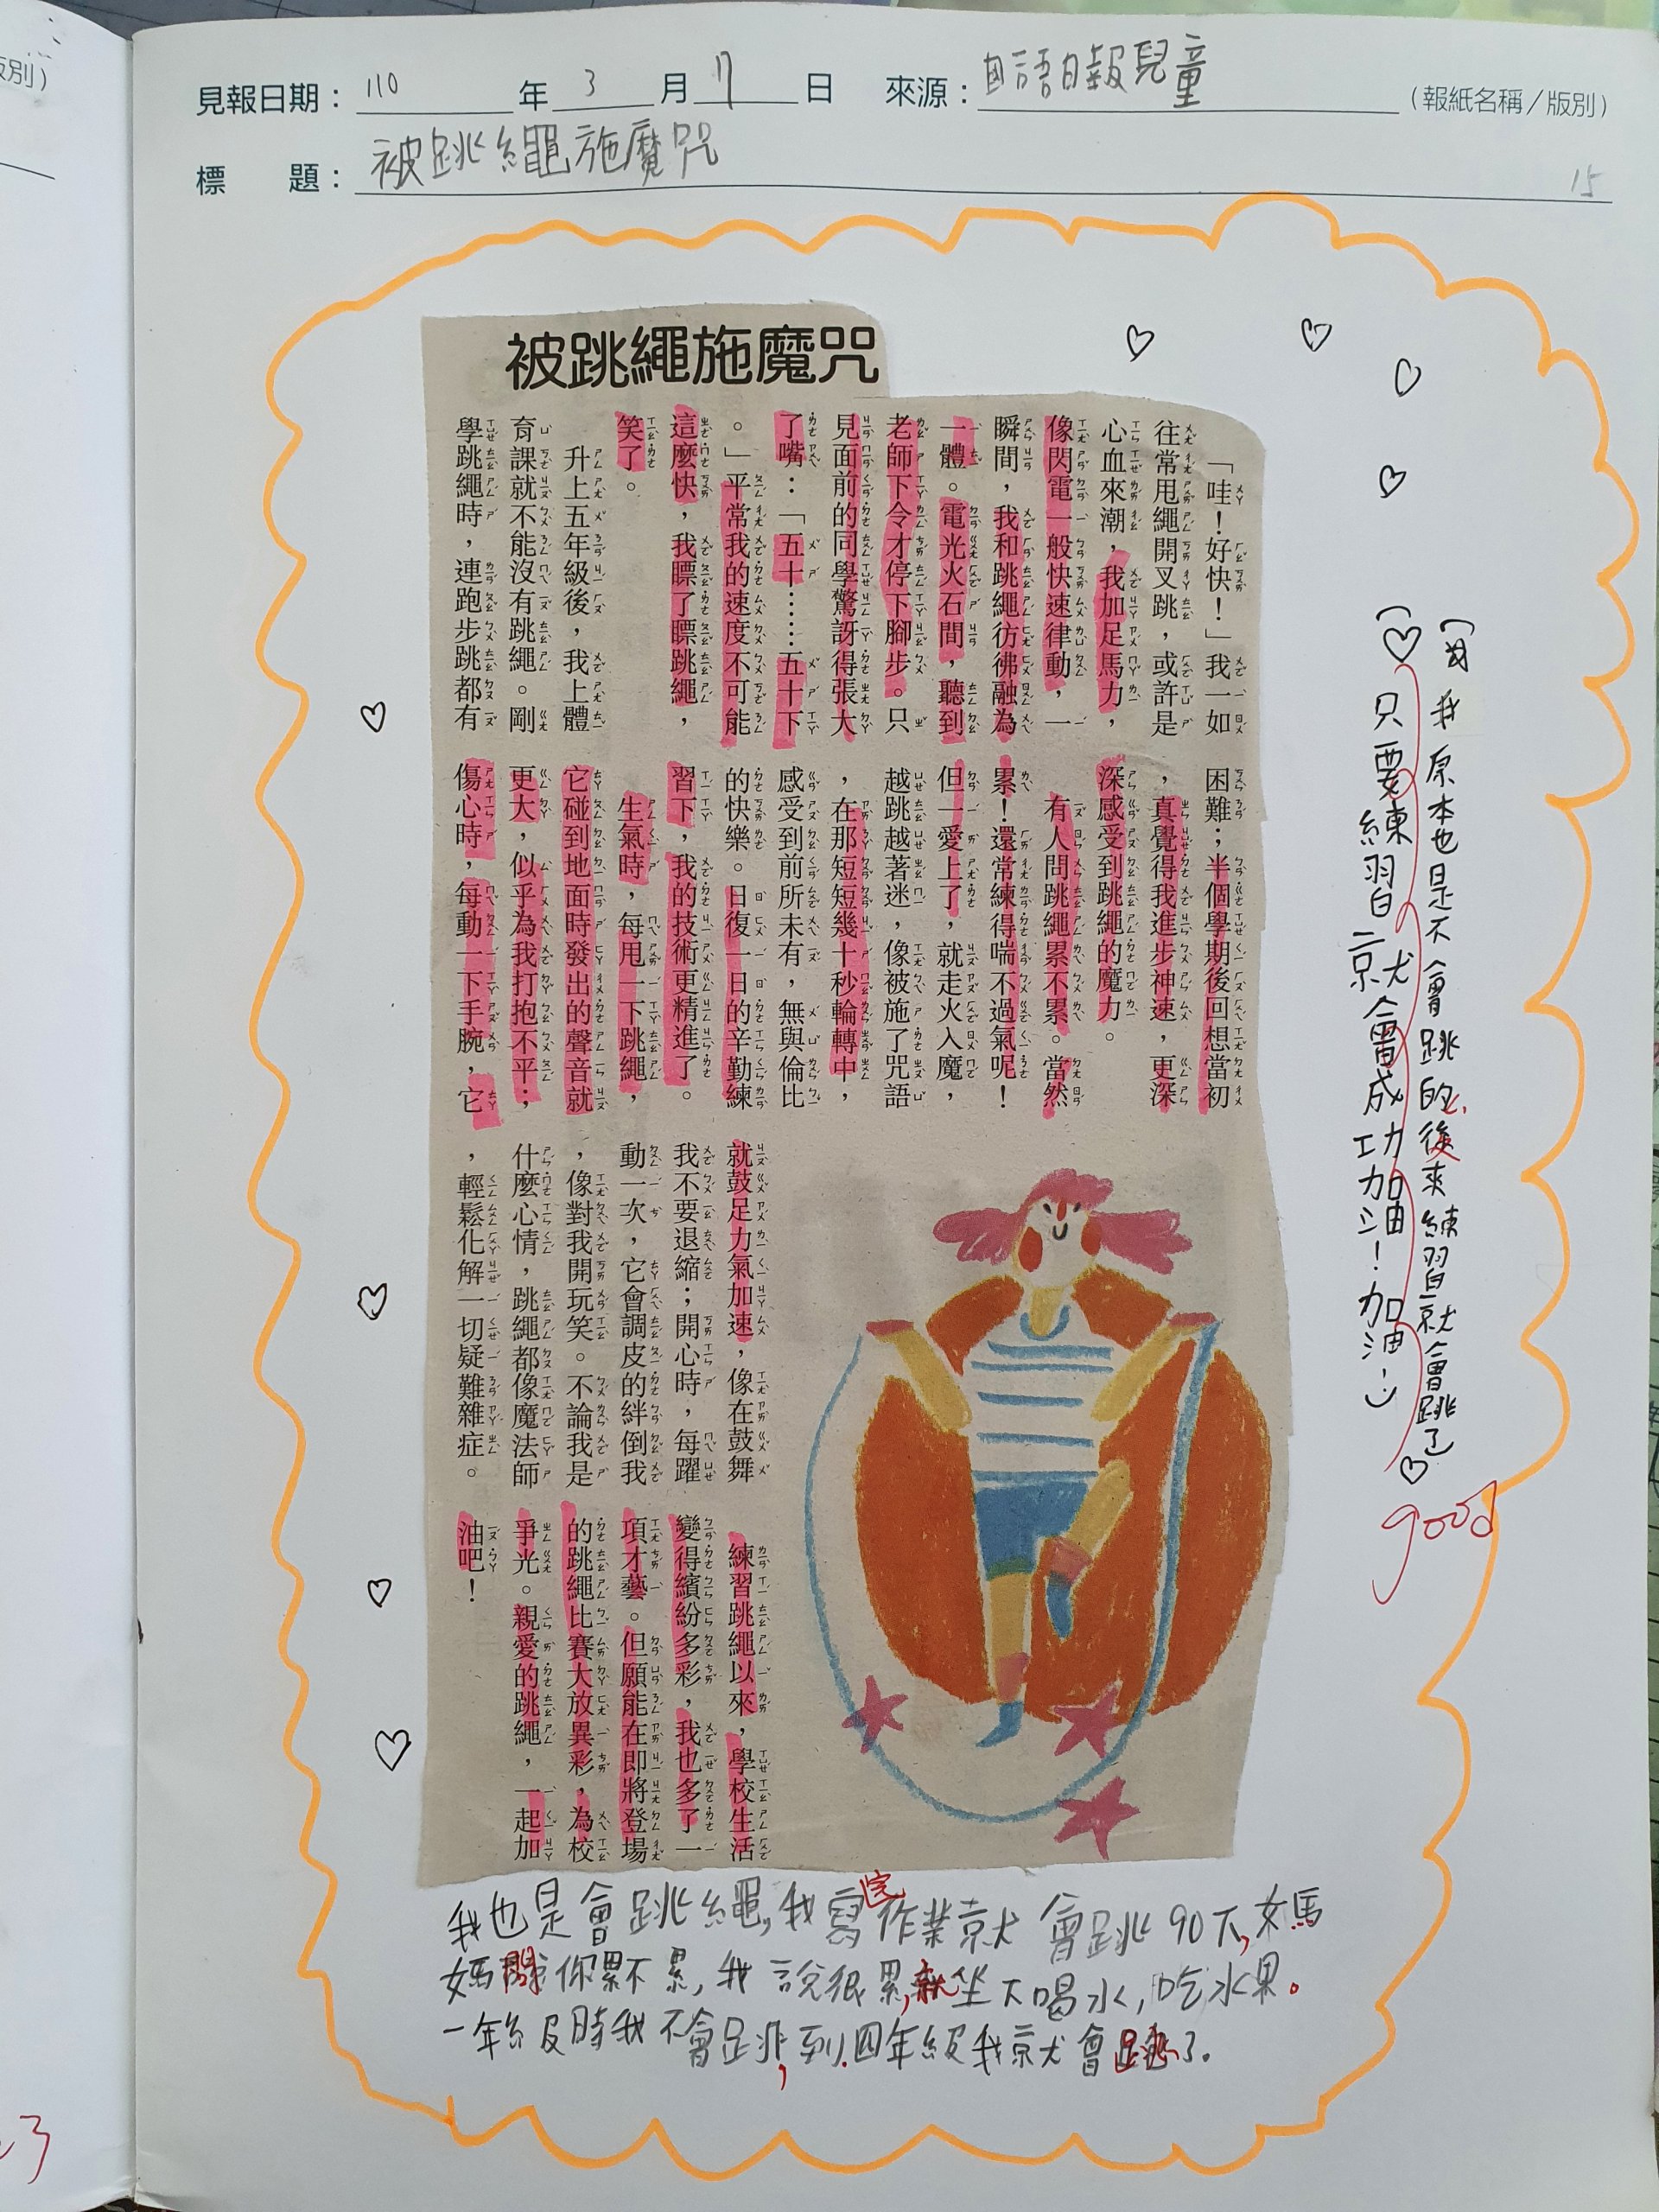 版別)
見報日期：110年3月17日 來源：国語日報兒童(報紙名稱/版別)
標 題：被跳繩施魔咒
15
被跳繩施魔咒
「哇！好快！」我一如
往常甩繩開叉跳，或許是
心血來潮，我加足馬力，
像閃電一般快速律動，一
瞬間，我和跳繩彷彿融為
一體。電光火石間，聽到
老師下令才停下腳步。只
見面前的同學驚訝得張大
了嘴：「五十……五十下
。」平常我的速度不可能
這麼快，我瞟了瞟跳繩，
笑了。
升上五年級後，我上體
育課就不能沒有跳繩。剛
學跳繩時，連跑步跳都有
困難；半個學期後回想當初
，真覺得我進步神速，更深
深感受到跳繩的魔力。
有人問跳繩累不累。當然
累！還常練得喘不過氣呢！
但一愛上了，就走火入魔，
越跳越著迷，像被施了咒語
，在那短短幾十秒輪轉中，
感受到前所未有，無與倫比
的快樂。日復一日的辛勤練
習下，我的技術更精進了。
生氣時，每甩一下跳繩，
它碰到地面時發出的聲音就
更大，似乎為我打抱不平；
傷心時，每動一下手腕，它
就鼓足力氣加速，像在鼓舞
我不要退縮；開心時，每躍
動一次，它會調皮的絆倒我
，像對我開玩笑。不論我是
什麼心情，跳繩都像魔法師
，輕鬆化解一切疑難雜症。
練習跳繩以來，學校生活
變得繽紛多彩，我也多了一
項才藝。但願能在即將登場
的跳繩比賽大放異彩，為校
爭光。親愛的跳繩，一起加
油吧！
我原本也是不會跳的，後來練習就會跳了
只要練習就會成功加油！加油
good
我也是會跳繩，我寫完作業就會跳90下，媽
媽問你累不累，我說很累，就坐下喝水，吃水果。
一年級時我不會跳，到四年級我就會跳了。